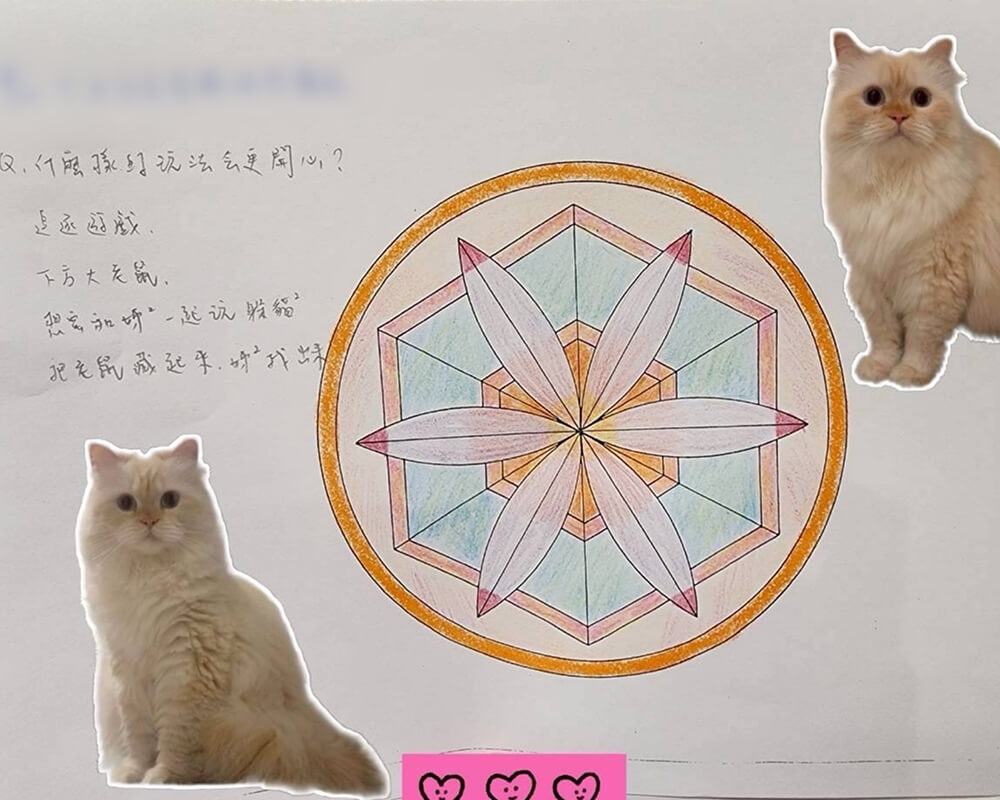 Q. 什麼樣的玩法会更開心?
追逐遊戲.
下方大老鼠.
想要和妳² 一起玩躲貓²
把老鼠藏起來. 妳² 找出來